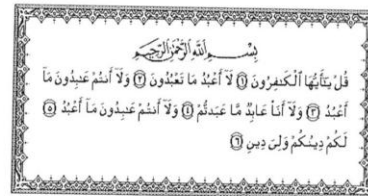 بِسْمِ اللَّهِ الرَّحْمَٰنِ الرَّحِيمِ
قُلْ يَٰٓأَيُّهَا ٱلْكَٰفِرُونَ ۝١ لَآ أَعْبُدُ مَا تَعْبُدُونَ ۝٢ وَلَآ أَنتُمْ عَٰبِدُونَ مَآ
أَعْبُدُ ۝٣ وَلَآ أَنَا۠ عَابِدٌ مَّا عَبَدتُّمْ ۝٤ وَلَآ أَنتُمْ عَٰبِدُونَ مَآ أَعْبُدُ ۝٥
لَكُمْ دِينُكُمْ وَلِىَ دِينِ ۝٦